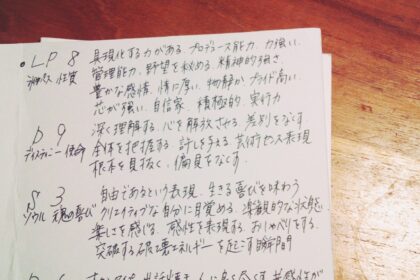 • LP 8 具現化する力がある。プロデュース能力、力強い、
本質 性質 管理能力、野望を秘める、精神的強さ、
豊かな感情、情に厚い、物静か、プライド高い、
芯が強い、自信家、積極的、実行力
D 9 深く理解する、心を解放させる、差別をなくす
ディスティニー 使命 全体を把握する、許しを与える、芸術やスターの表現
根本を見抜く、偏見をなくす。
S 3 自由であるという表現、生きる喜びを味わう
ソウル 魂の喜び クリエイティブな自分に目覚める、楽観的な状態
楽しさを感じる、感性を表現する、おしゃべりをする、
突破する破壊エネルギーを起こす瞬間